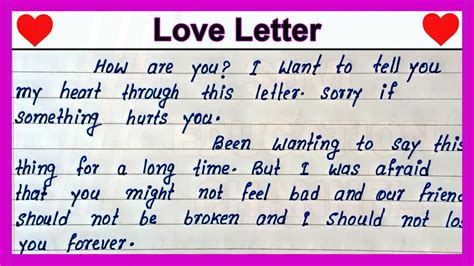 Love Letter
How are you? I want to tell you
my heart through this letter. sorry if
something hurts you.
Been wanting to say this
thing for a long time. But I was afraid
that you might not feel bad and our frien
should not be broken and I should not lo
you forever.